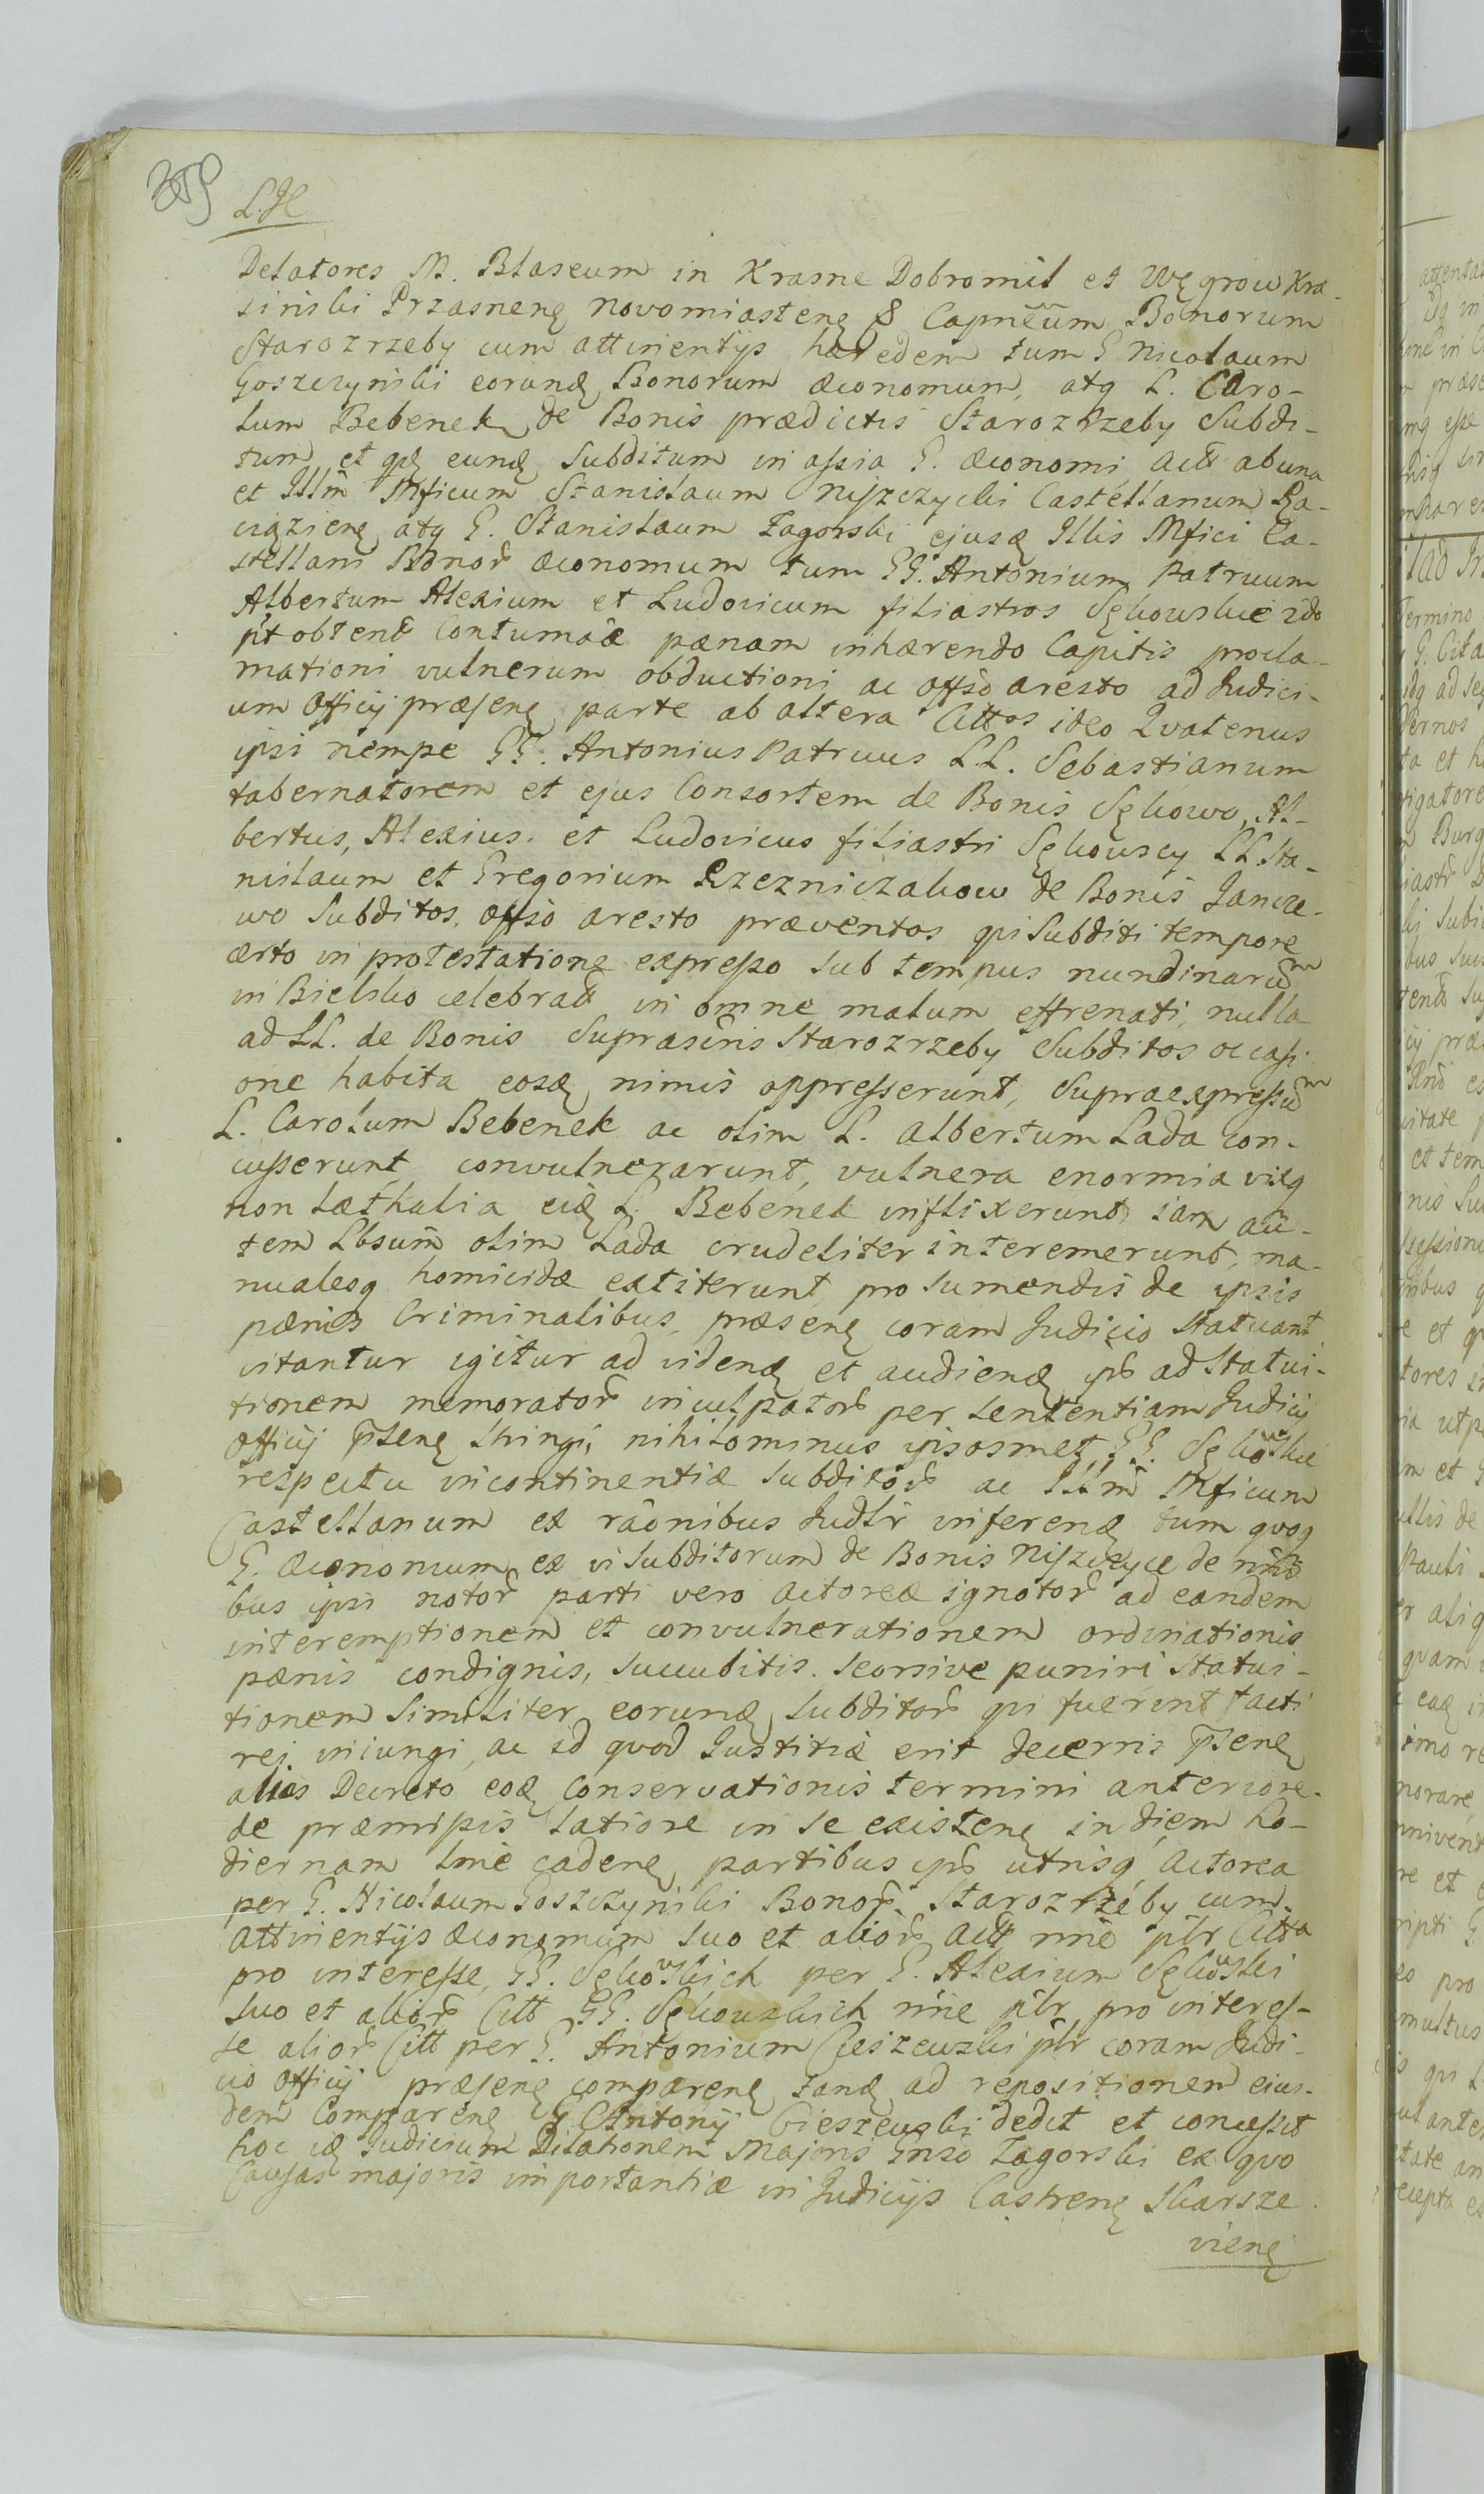 359
L. H
Delatores M. Blaseum in Krasne Dobromil et Węgrow Kra-
sinski Przasnenę Novomiastenę & Capneum Bonorum
Starozrzeby cum attinentijs hæredem tum G Nicolaum
Goszczynski eorundę Bonorum Œconomum, atq L. Caro-
lum Bebenek de Bonis prædictis Starozrzeby Subdi-
tum et eundę Subditum in assia G. Œconomi Act ab una
et Illm Mficum Stanislaum Niszczycki Castellanum Ra-
ciązienę atq G. Stanislaum Zagorski ejusdę Illis Mfici Ca-
stellani Bonor Œconomum tum GG. Antonium Patruum
Albertum Alexium et Ludovicum filiastros Sękowskie
obtent Contumaciæ pænam inhærendo Capitis procla-
mationi vulnerum obductioni ac offso aresto ad Judici-
um Officij præsenę parte ab altera Cittos ideo Qvatenus
ipsi nempe GG. Antonius Patruus LL. Sebastianum
tabernatorem et ejus Consortem de Bonis Sękowo, Al-
bertus, Alexius et Ludovicus filiastri Sękowscy LL Sta-
nislaum et Gregorium Rzezniczakow de Bonis Jancze-
wo Subditos, offso aresto præventos qui Subditi tempore
certo in protestatione expresso sub tempus nundinarum
in Bielsko celebrat in omne malum effrenati, nulla
ad LL. de Bonis Suprascris Starozrzeby Subditos occasi-
one habita eosdę nimis oppresserunt, Supraexpressum
L. Carolum Bebenek ac olim L. Albertum Lada con-
cusserunt, convulnerarunt, vulnera enormia vixq
non læthalia eidę L. Bebenek inflixerunt, iam au-
tem Lbsum olim Lada crudeliter interemerunt, ma-
nualesq homicidæ extiterunt pro sumendis de ipsis
pænis Criminalibus, præsenę coram Judicio Statuant
citantur igitur ad videndę et audiendę ad Statui-
tionem memorator inculpator per Sententiam Judicij
Officij Psenę stringi, nihilominus ipsosmet GG. Sękowskie
respectu incontinentiæ Subditor ac Illm Mficum
Castellanum ex raonibus Judlr inferendę tum qvoq
G. Œconomum ex vi Subditorum de Bonis Niszczyce de nmi
bus ipsi notor parti vero Actoreæ ignotor ad eandem
interemptionem et convulnerationem ordinationis
pænis condignis, succubitis seorsive puniri Statui-
tionem Similiter eorundę Subditor qui fuerint facti
rei iniungi, ac id quod Justitiæ erit decerni Psenę
alias Decreto eodę conservationis termini anteriore
de præmissis latiore in se existenę in diem ho-
diernam lme cadenę, partibus utrisq Actorea
per G. Nicolaum Goszczynski Bonor Starozrzeby cum
Attinentijs Œconomum suo et alior Act nme plr Citta
pro interesse, GG. Sękowskich per G. Alexium Sękowski
suo et alior Citt GG. Sękowskich nme plr pro interes-
se alior Citt per G. Antonium Cieszewski plr coram Judi-
cio Officij præsenę comparenę tandę ad repositionem eius-
dem Comparenę G Antonij Cieszewski dedit et concessit
hoc idę Judicium Dilationem Majoris Gnso Zagorski ex quo
Causas majoris importantiæ in Judicijs Castrenę Skarsze-
vienę